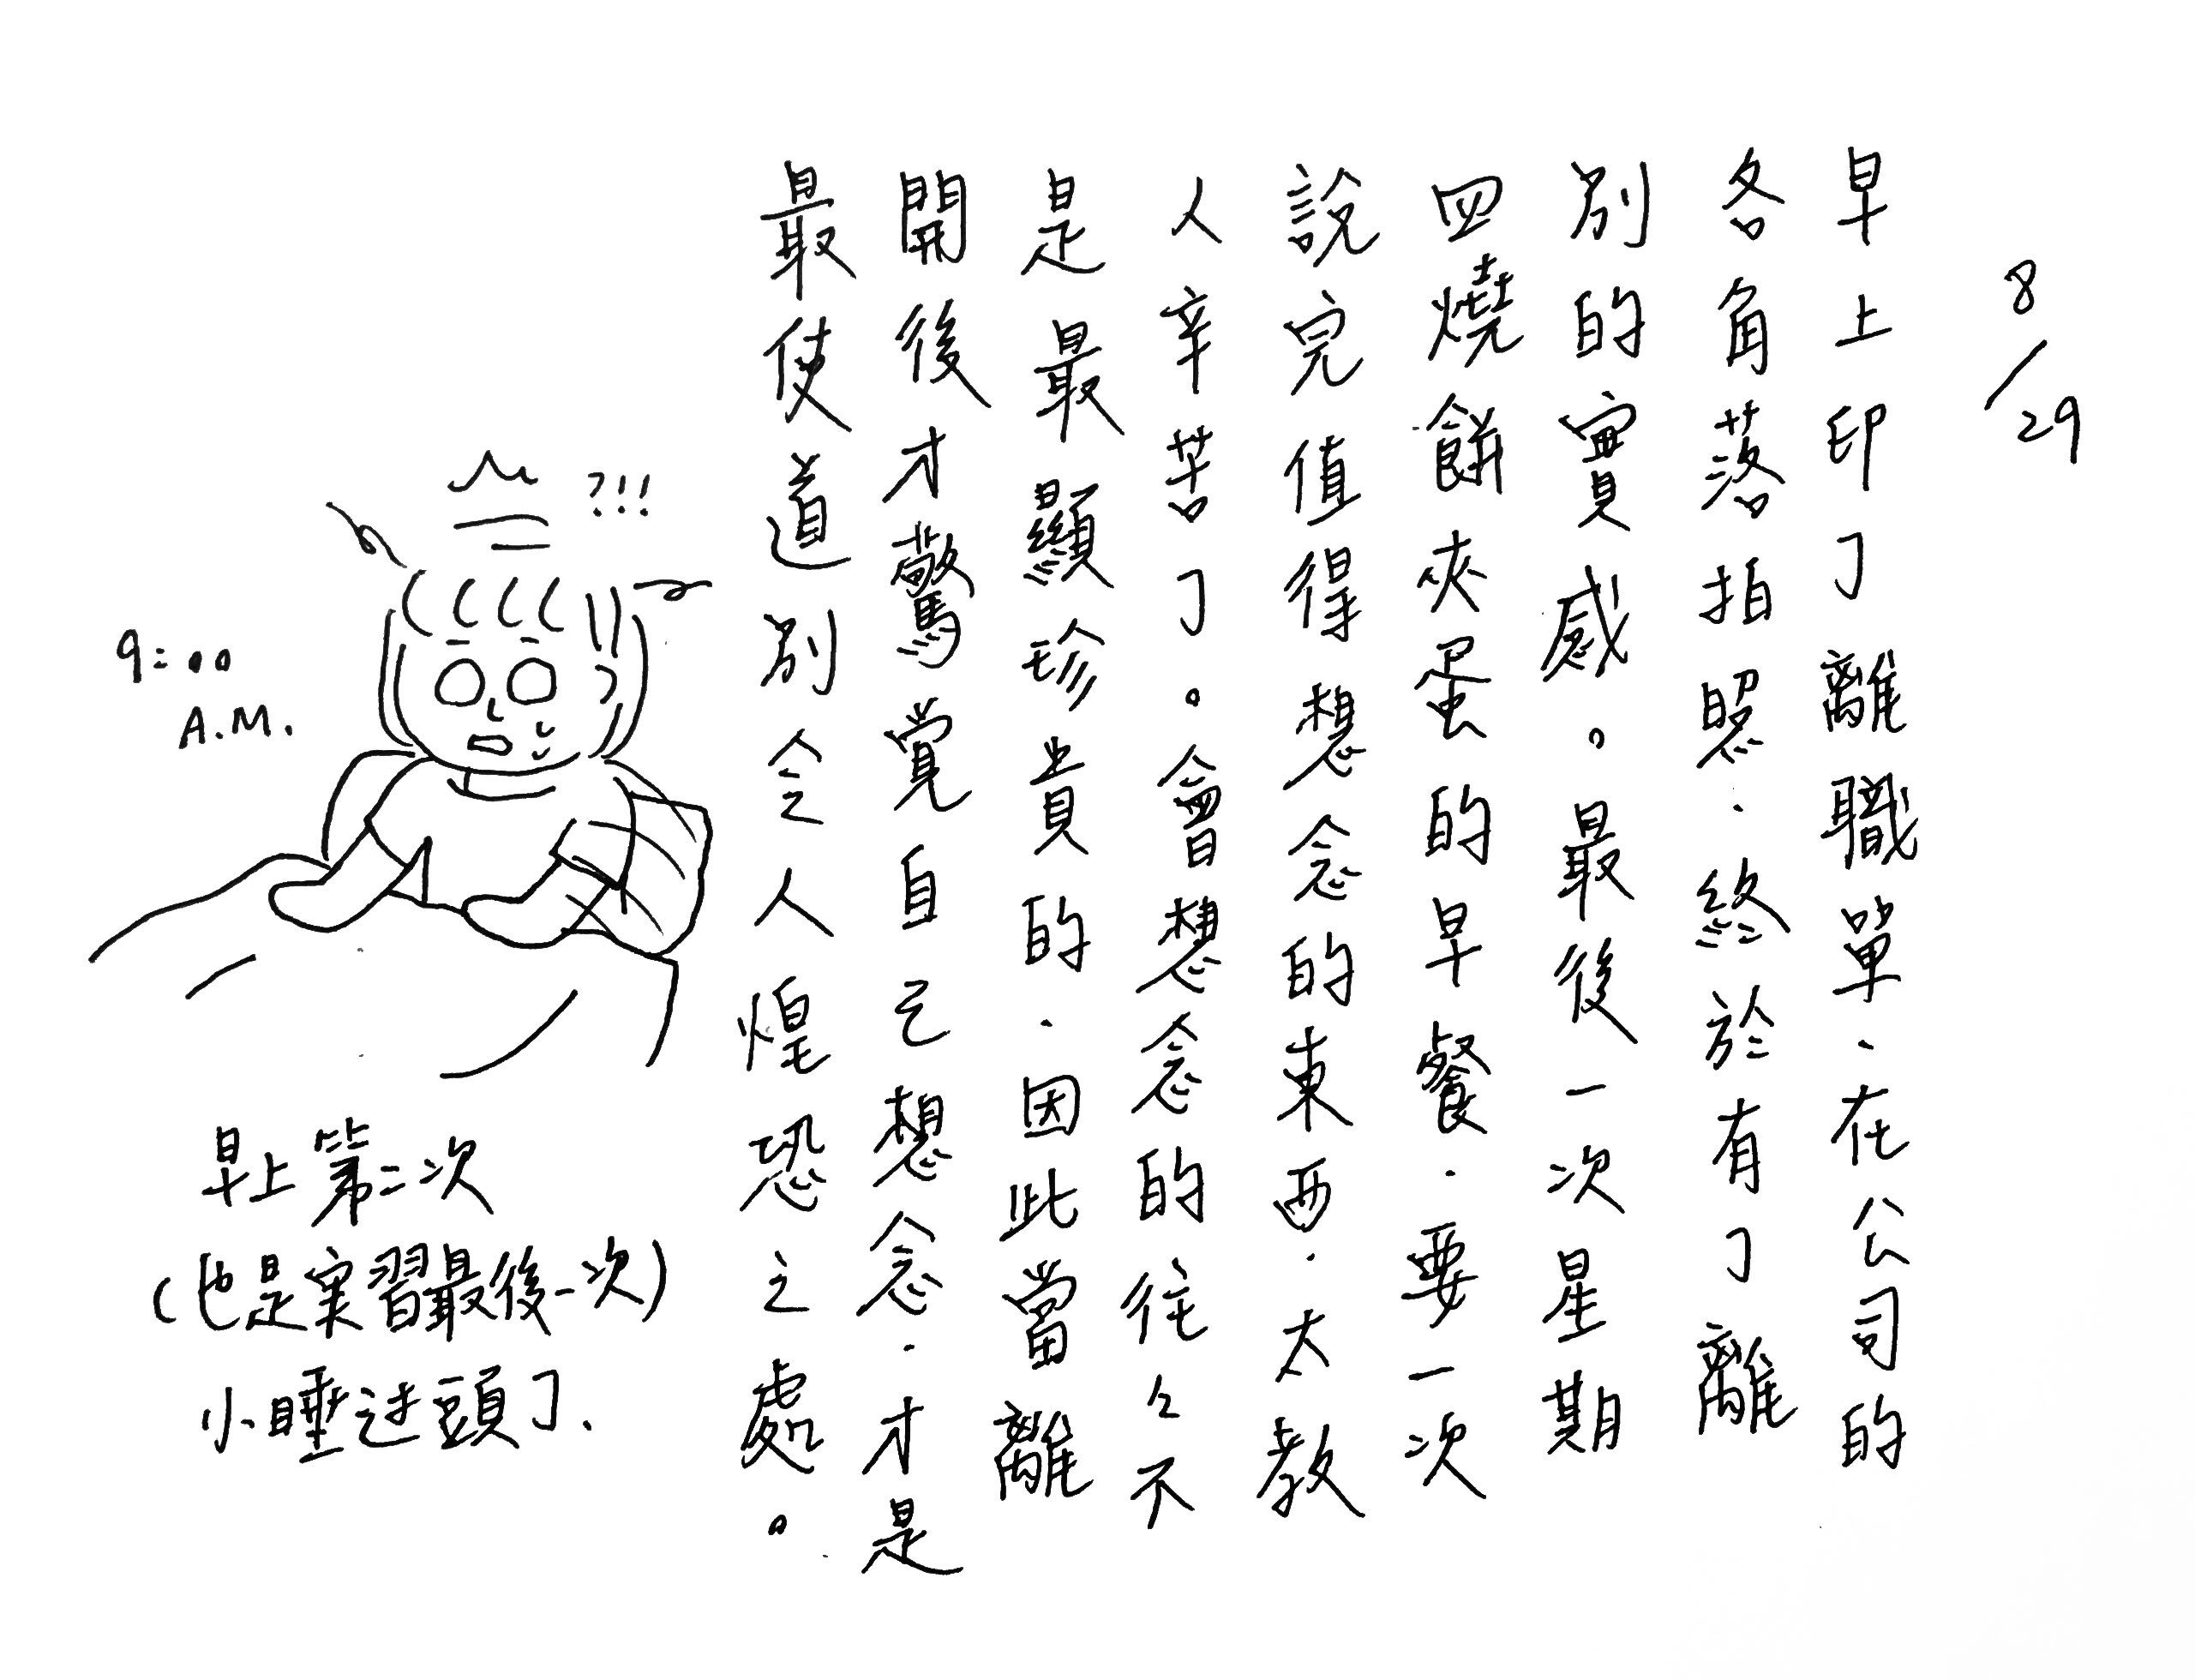 8/29
早上印了離職單、在公司的
各角落拍照、終於有了離
別的實感。最後一次星期
四燒餅夾蛋的早餐、要一次
說完值得想念的東西、太教
人辛苦了。會想念的往々不
是最顯珍貴的、因此當離
開後才驚覺自己想念、才是
最使道別令人惶恐之處。
?!!!
9:00
A.M.
早上第二次
(也是実習最後一次)
小睡过頭了、